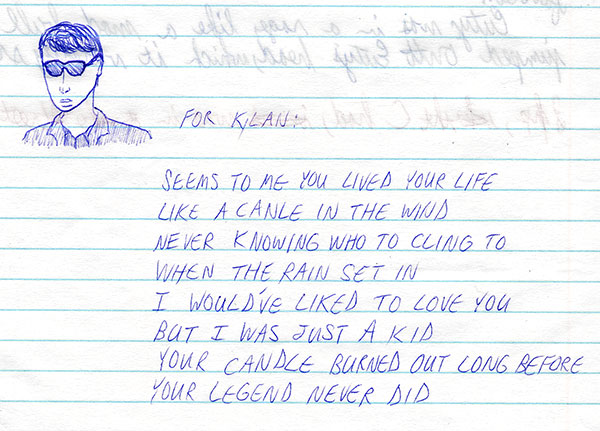 FOR KILAN:
SEEMS TO ME YOU LIVED YOUR LIFE
LIKE A CANLE IN THE WIND
NEVER KNOWING WHO TO CLING TO
WHEN THE RAIN SET IN
I WOULD'VE LIKED TO LOVE YOU
BUT I WAS JUST A KID
YOUR CANDLE BURNED OUT LONG BEFORE
YOUR LEGEND NEVER DID